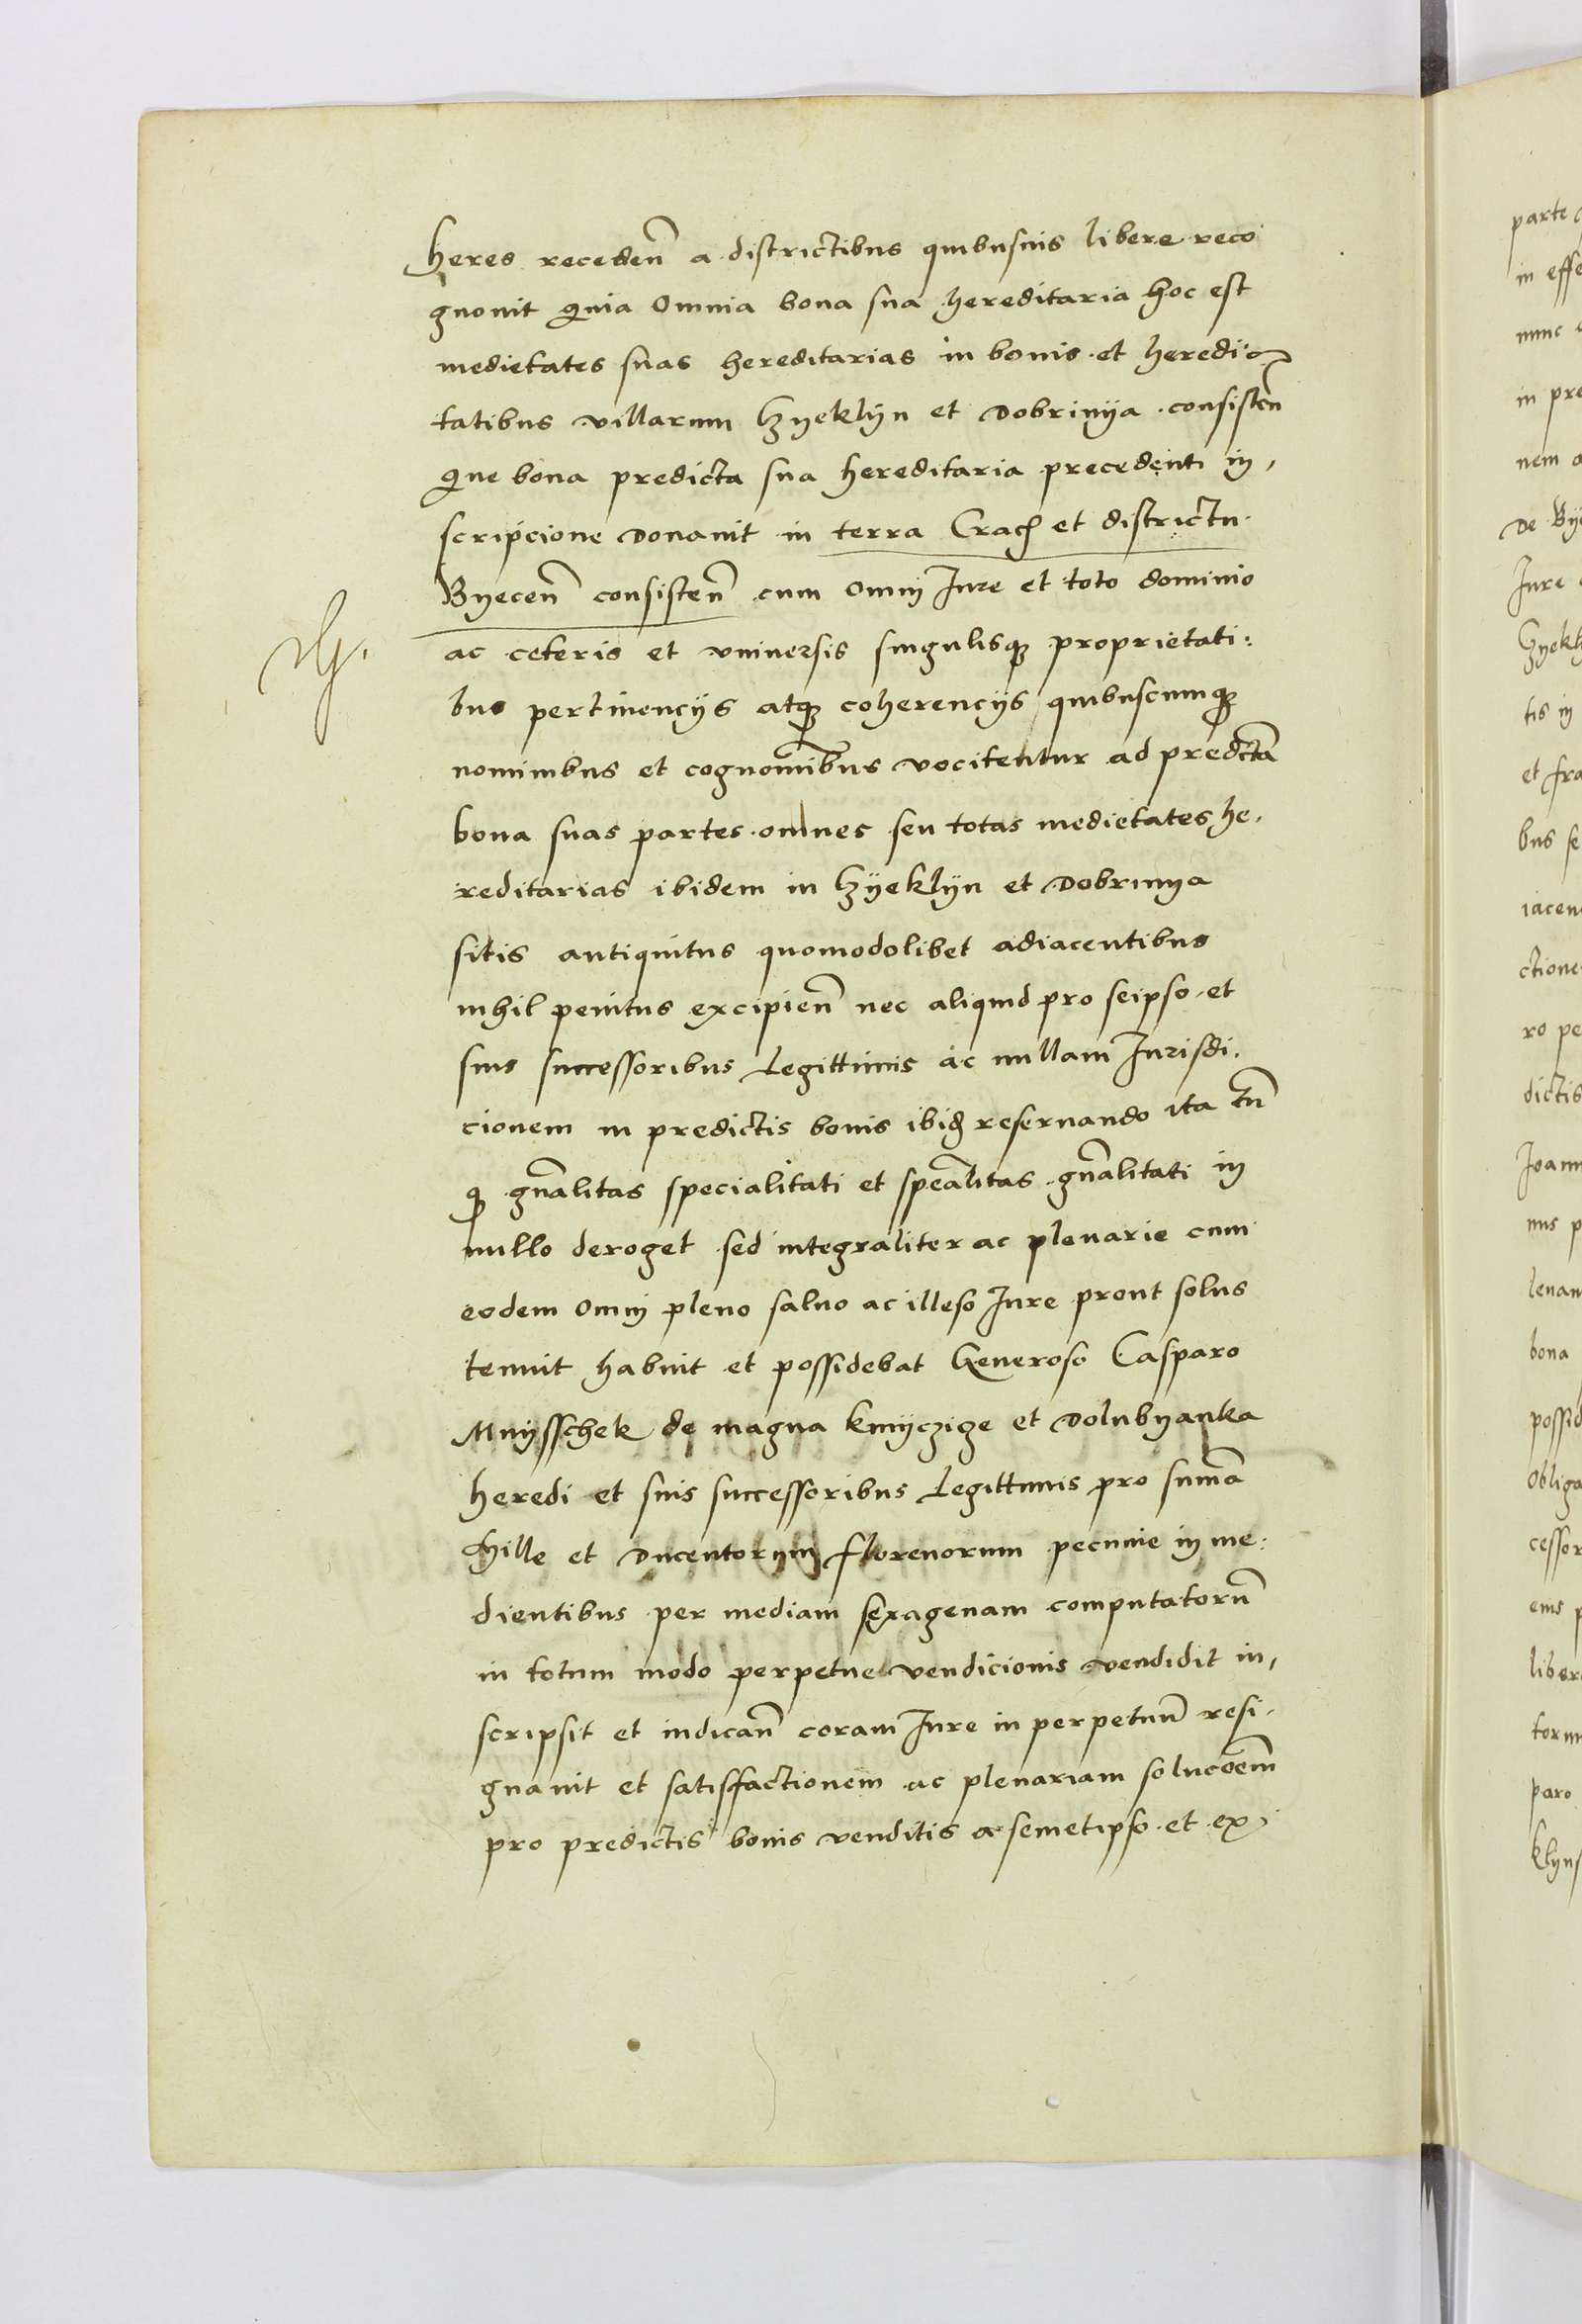 heres receden̄ a districtibus quibusuis libere reco
gnouit Quia Omnia bona sua hereditaria hoc est
medietates suas hereditarias in bonis et heredi
tatibus villarum Czyeklyn et Dobrinya consisten̄
Que bona predicta sua hereditaria precedenti in,
scripcione Donauit in terra Crac̄ et districtu
Byecen̄ consisten̄ cum omni Iure et toto dominio
ac ceteris et vniuersis singulisq̢ proprietati:
bus pertinencijs atq̢ coherencijs quibuscumq̢
nominibus et cognoīnibus vocitentur ad predcta
bona suas partes omnes seu totas medietates he,
reditarias ibidem in Czyeklyn et Dobrinya
sitis antiquitus quomodolibet adiacentibus
nihil penitus excipien̄ nec aliquid pro seipso et
suis successoribus Legittimis ac nullam Iurisdi,
cionem in predictis bonis ibid̄ reseruando ita tn̄
q̄ gn̄alitas specialitati et spēalitas gn̄alitati in
nullo deroget sed integraliter ac plenarie cum
eodem omni pleno saluo ac illeso Iure prout solus
tenuit habuit et possidebat Generoso Casparo
Mnysschek de magna kunyczige et Dolubyanka
heredi et suis successoribus Legittimis pro sum̄a
Mille et Ducentorum florenorum pecunie in me:
dientibus per mediam sexagenam computatorū
in totum modo perpetue vendicionis vendidit in,
scripsit et indican̄ coram Iure in perpetuū resi,
gnauit et satisfactionem ac plenariam solucōem
pro predictis bonis venditis a semetipso et ex
parte
in effe
nunc
in pre
nem a
De Bye
Iure
Czyekl
tis in
et fra
bus se
iacen
ctione
ro pe
dictis
Ioann
nus p
lenam
bona
possid
Obliga
cessor
eius p
liber
torum
paro
klyns